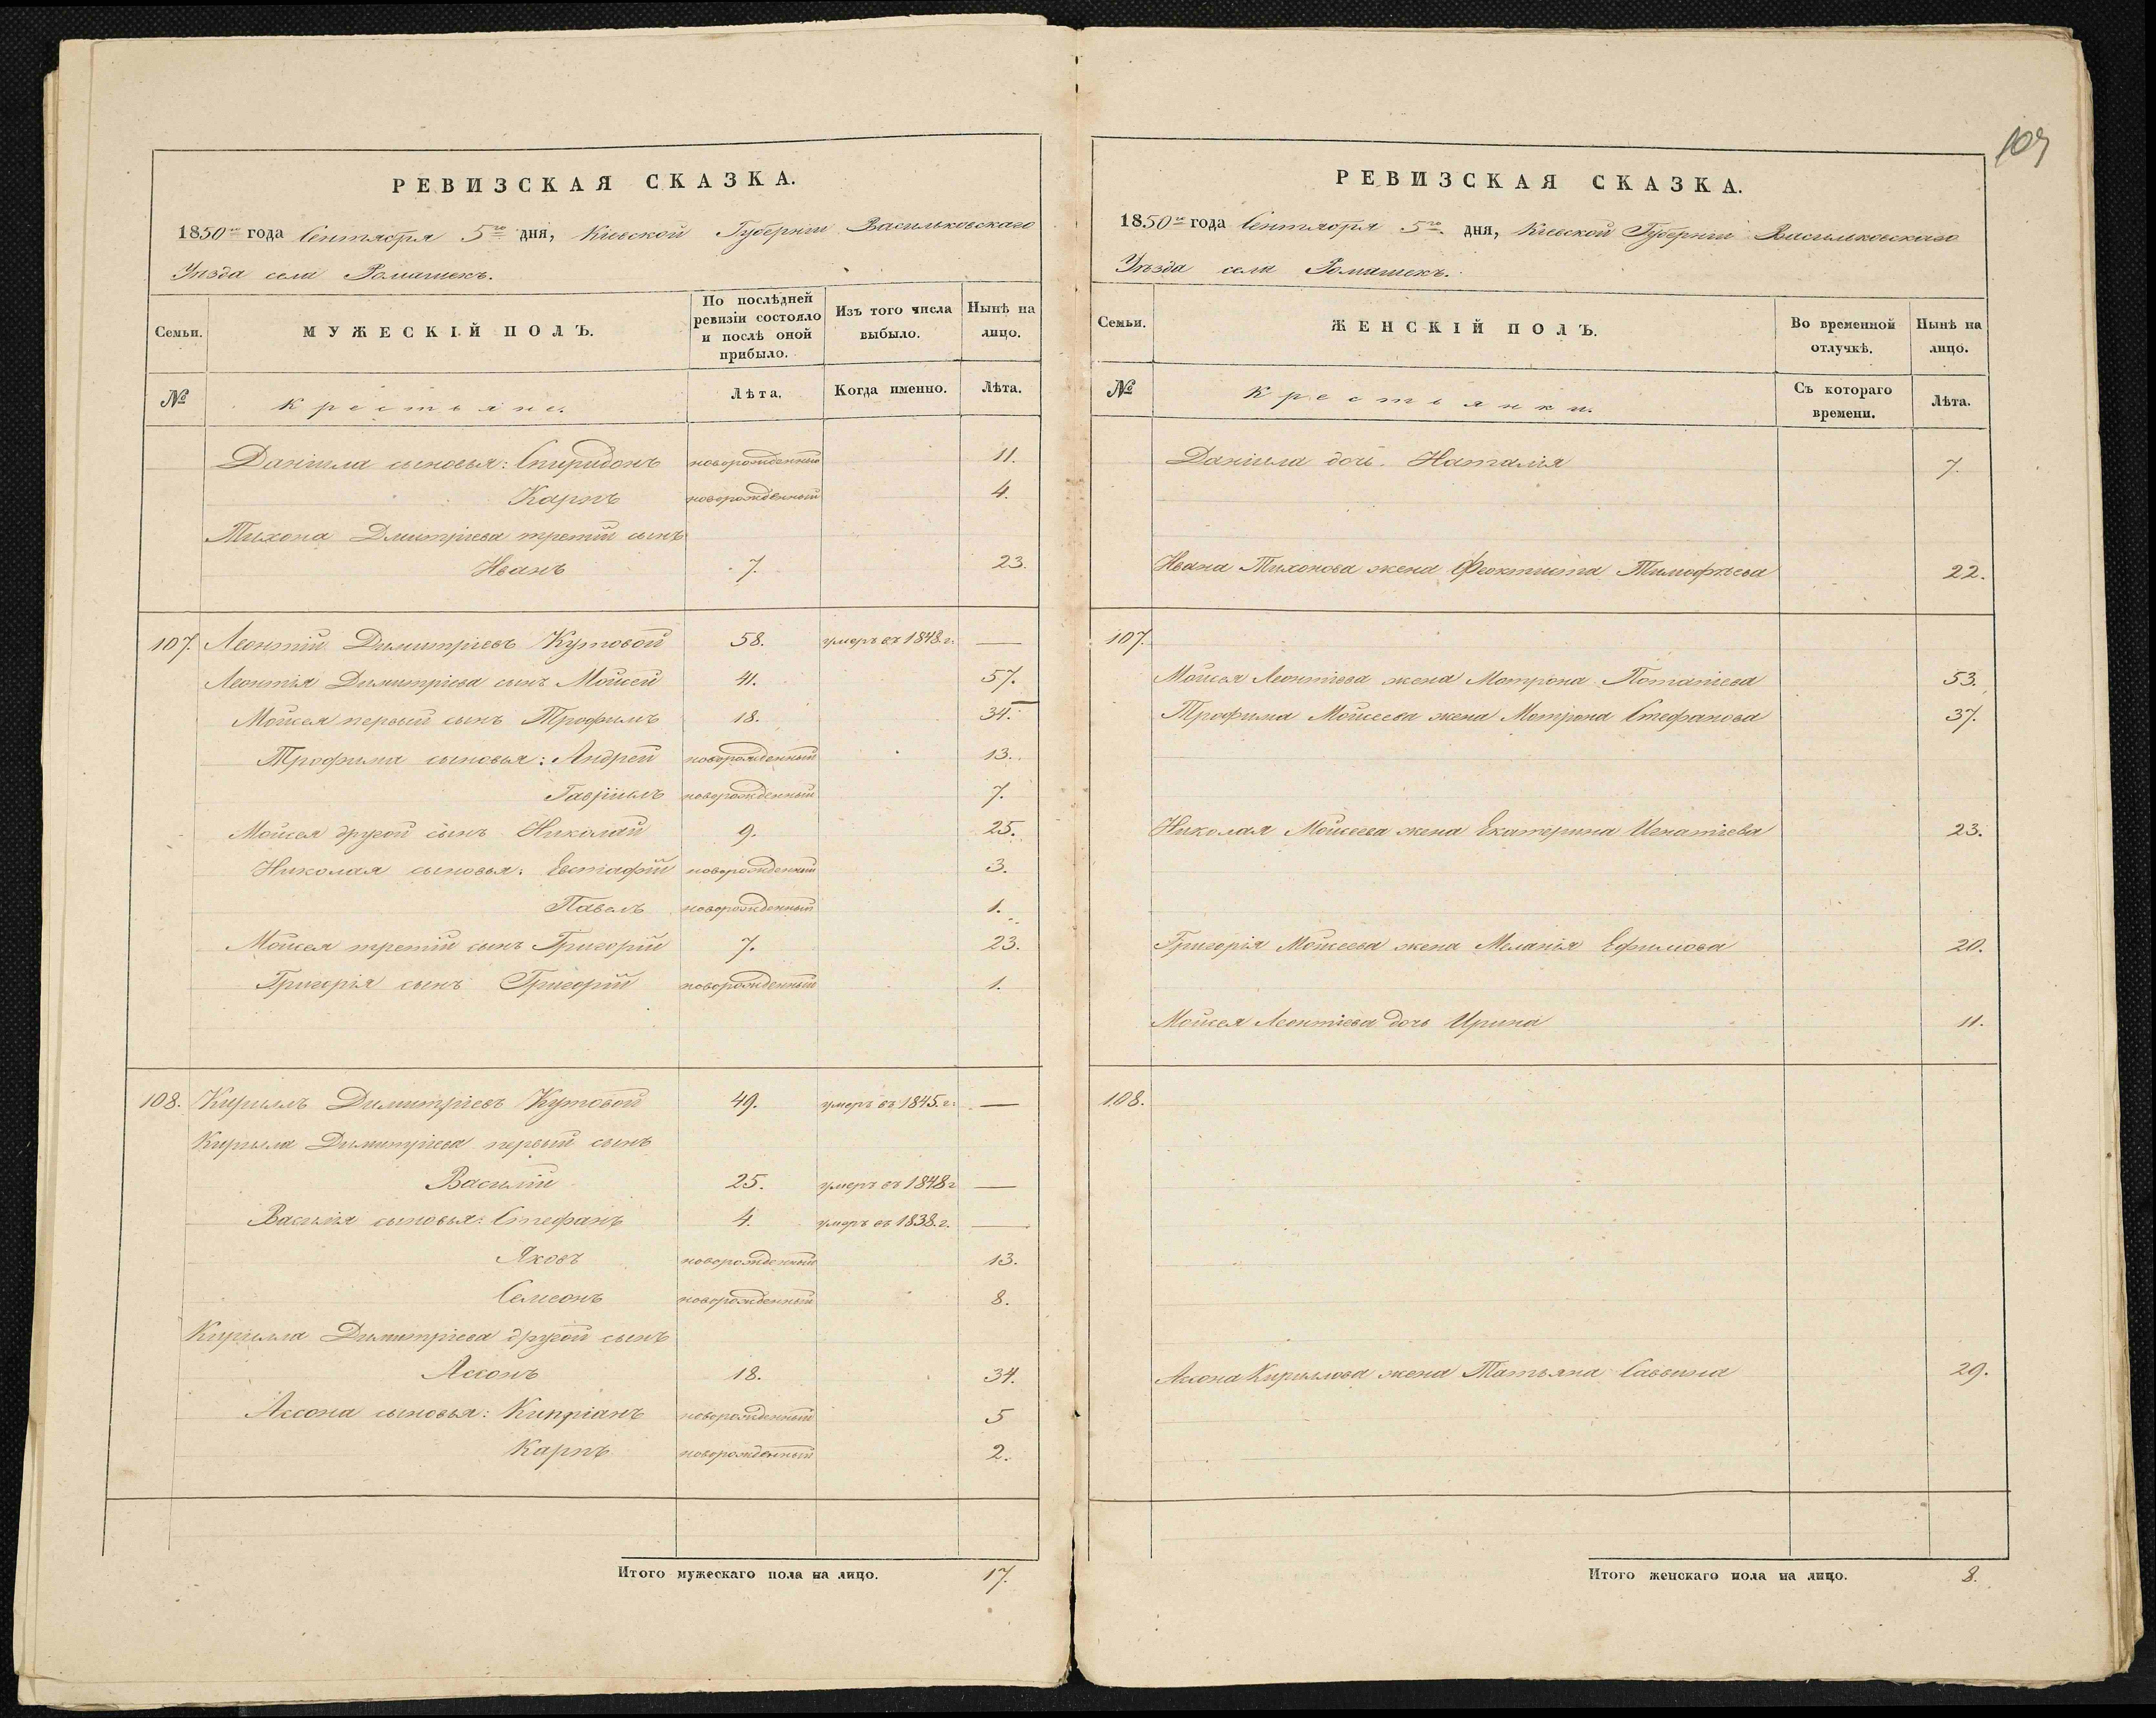 109
РЕВИЗСКАЯ СКАЗКА.
1850го года Сентября 5го дня, Кіевской Губерніи Васильковскаго
Уѣзда села Ромашекъ.
Семьи.
МУЖЕСКІЙ ПОЛЪ.
По послѣдней ревизіи состояло и послѣ оной прибыло.
Изъ того числа выбыло.
Нынѣ на лицо.
№
Крестьяне.
Лѣта.
Когда именно.
Лѣта.
Даніила сыновья: Спиридонъ новорожденный 11.
Карпъ новорожденный 4.
Тихона Дмитріева третій сынъ
Иванъ 7. 23.
107. Леонтій Димитріевъ Кутовой 58. умеръ въ 1848. г. —
Леонтія Димитріева сынъ Мойсей 41. 57.
Мойсея первый сынъ Трофимъ 18. 34.
Трофима сыновья: Андрей новорожденный 13.
Гавріилъ новорожденный 7.
Мойсея другой сынъ Николай 9. 25.
Николая сыновья: Евстафій новорожденный 3.
Павелъ новорожденный 1.
Мойсея третій сынъ Григорій 7. 23.
Григорія сынъ Григорій новорожденный 1.
108. Кириллъ Димитріевъ Кутовой 49. умеръ въ 1845. г. —
Кирилла Димитріева первый сынъ
Василій 25. умеръ въ 1848 г —
Василія сыновья: Стефанъ 4. умеръ въ 1838. г. —
Яковъ новорожденный 13.
Семеонъ новорожденный 8.
Кирилла Димитріева другой сынъ
Ассонъ 18. 34.
Ассона сыновья: Кипріанъ новорожденный 5
Карпъ новорожденный 2.
Итого мужескаго пола на лицо. 17.
РЕВИЗСКАЯ СКАЗКА.
1850го года Сентября 5го дня, Кіевской Губерніи Васильковскаго
Уѣзда села Ромашекъ.
Семьи.
ЖЕНСКІЙ ПОЛЪ.
Во временной отлучкѣ.
Нынѣ на лицо.
№
Крестьянки.
Съ котораго времени.
Лѣта.
Даніила дочь Наталія 7.
Ивана Тихонова жена Феоктиста Тимофѣева 22.
107.
Мойсея Леонтіева жена Мотрона Потапіева 53.
Трофима Мойсеева жена Мотрона Стефанова 37.
Николая Мойсеева жена Екатерина Игнатіева 23.
Григорія Мойсеева жена Меланія Ефимова 20.
Мойсея Леонтіева дочь Ирина 11.
108.
Ассона Кириллова жена Татьяна Саввина 29.
Итого женскаго пола на лицо. 8.